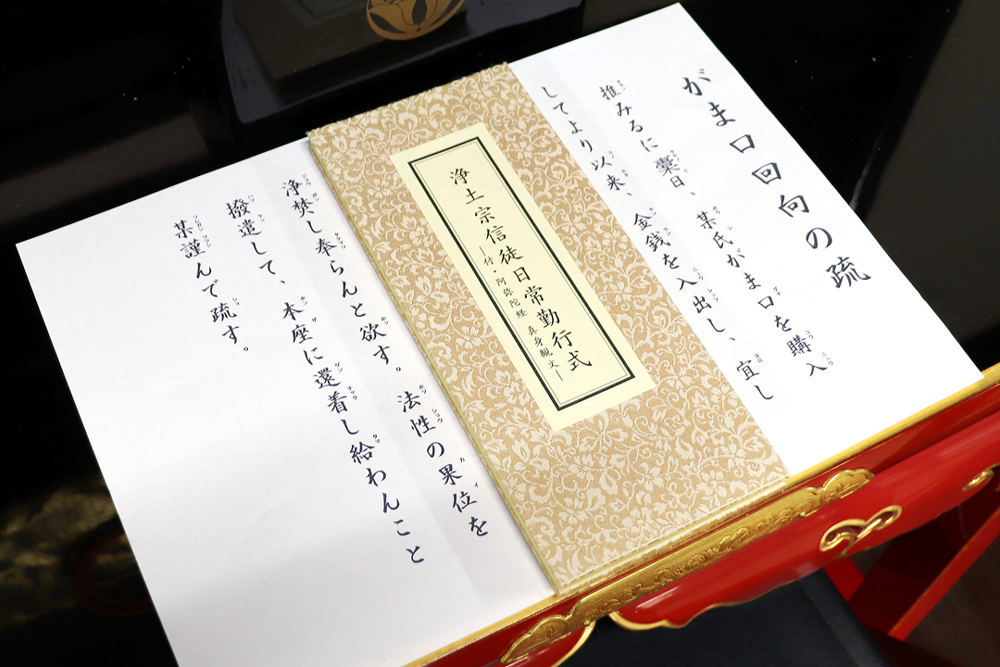 がま口回向の疏
推みるに嚢日、某氏がま口を購入
してより以来、金銭を入出し、宜し
浄土宗信徒日常勤行式
―付・阿弥陀経 真身観文―
浄焚し奉らんと欲す。法性の果位を
撥遣して、本座に還着し給わんこと
某謹んで疏す。